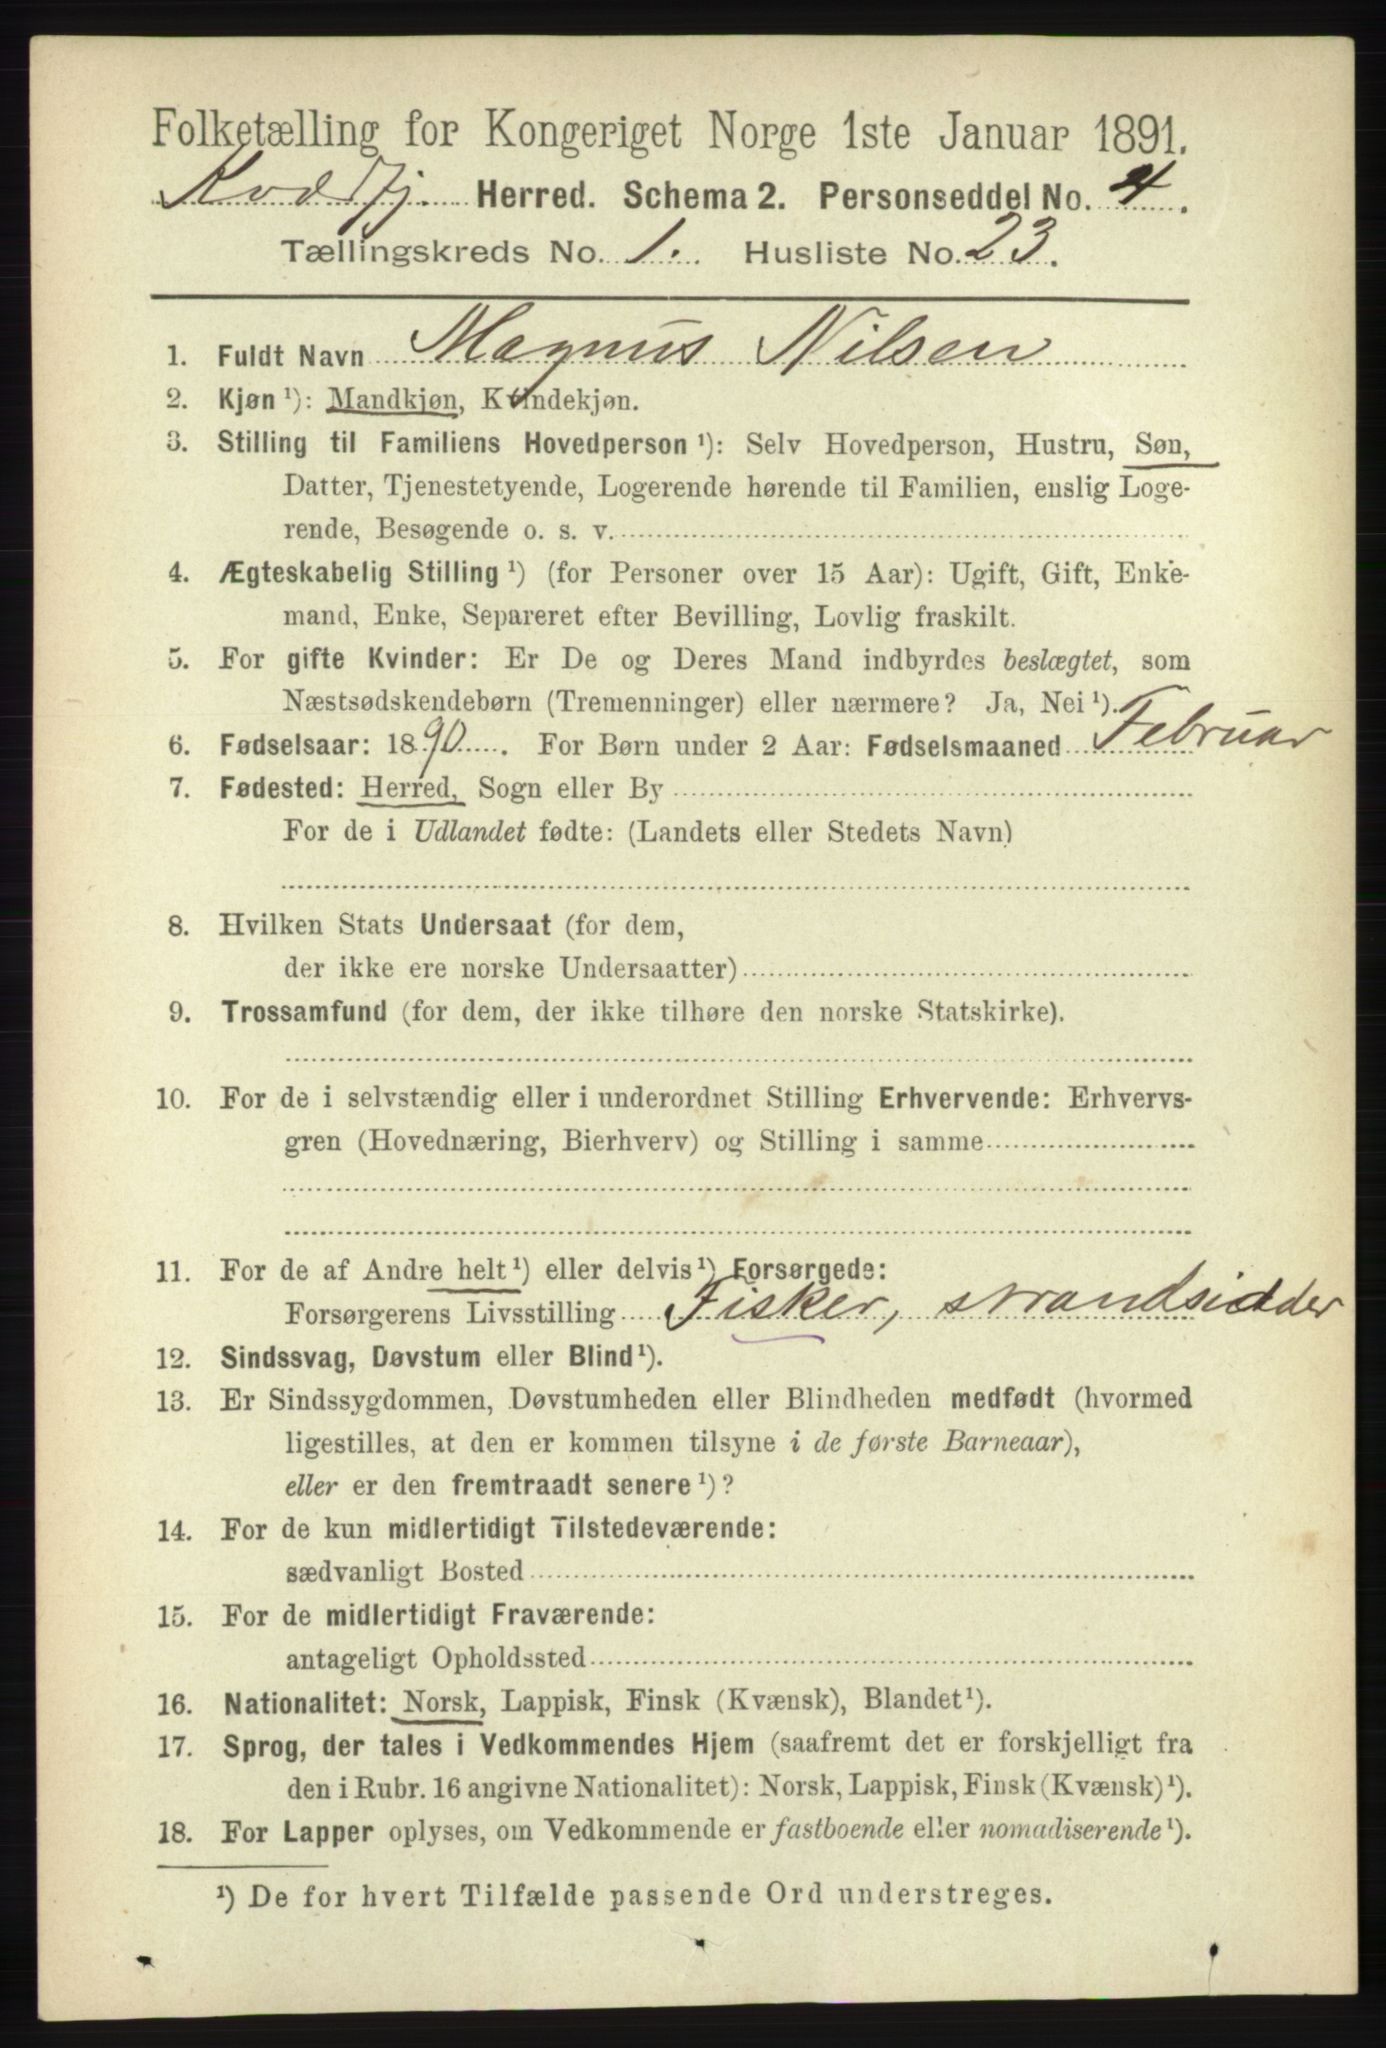 Folketælling for Kongeriget Norge 1ste Januar 1891.
Kvædfj. Herred. Schema 2. Personseddel No. 4.
Tællingskreds No. 1. Husliste No. 23.
1. Fuldt Navn Magnus Nilsen
2. Kjøn ¹): Mandkjøn, Kvindekjøn.
3. Stilling til Familiens Hovedperson ¹): Selv Hovedperson, Hustru, Søn,
Datter, Tjenestetyende, Logerende hørende til Familien, enslig Loge-
rende, Besøgende o. s. v.
4. Ægteskabelig Stilling ¹) (for Personer over 15 Aar): Ugift, Gift, Enke-
mand, Enke, Separeret efter Bevilling, Lovlig fraskilt.
5. For gifte Kvinder: Er De og Deres Mand indbyrdes beslægtet, som
Næstsødskendebørn (Tremenninger) eller nærmere? Ja, Nei ¹).
6. Fødselsaar: 1890. For Børn under 2 Aar: Fødselsmaaned Februar
7. Fødested: Herred, Sogn eller By
For de i Udlandet fødte: (Landets eller Stedets Navn)
8. Hvilken Stats Undersaat (for dem,
der ikke ere norske Undersaatter)
9. Trossamfund (for dem, der ikke tilhøre den norske Statskirke).
10. For de i selvstændig eller i underordnet Stilling Erhvervende: Erhvervs-
gren (Hovednæring, Bierhverv) og Stilling i samme
11. For de af Andre helt ¹) eller delvis ¹) Forsørgede:
Forsørgerens Livsstilling Fisker, strandsidder
12. Sindssvag, Døvstum eller Blind ¹).
13. Er Sindssygdommen, Døvstumheden eller Blindheden medfødt (hvormed
ligestilles, at den er kommen tilsyne i de første Barneaar),
eller er den fremtraadt senere ¹)?
14. For de kun midlertidigt Tilstedeværende:
sædvanligt Bosted
15. For de midlertidigt Fraværende:
antageligt Opholdssted
16. Nationalitet: Norsk, Lappisk, Finsk (Kvænsk), Blandet ¹).
17. Sprog, der tales i Vedkommendes Hjem (saafremt det er forskjelligt fra
den i Rubr. 16 angivne Nationalitet): Norsk, Lappisk, Finsk (Kvænsk) ¹).
18. For Lapper oplyses, om Vedkommende er fastboende eller nomadiserende ¹).
¹) De for hvert Tilfælde passende Ord understreges.